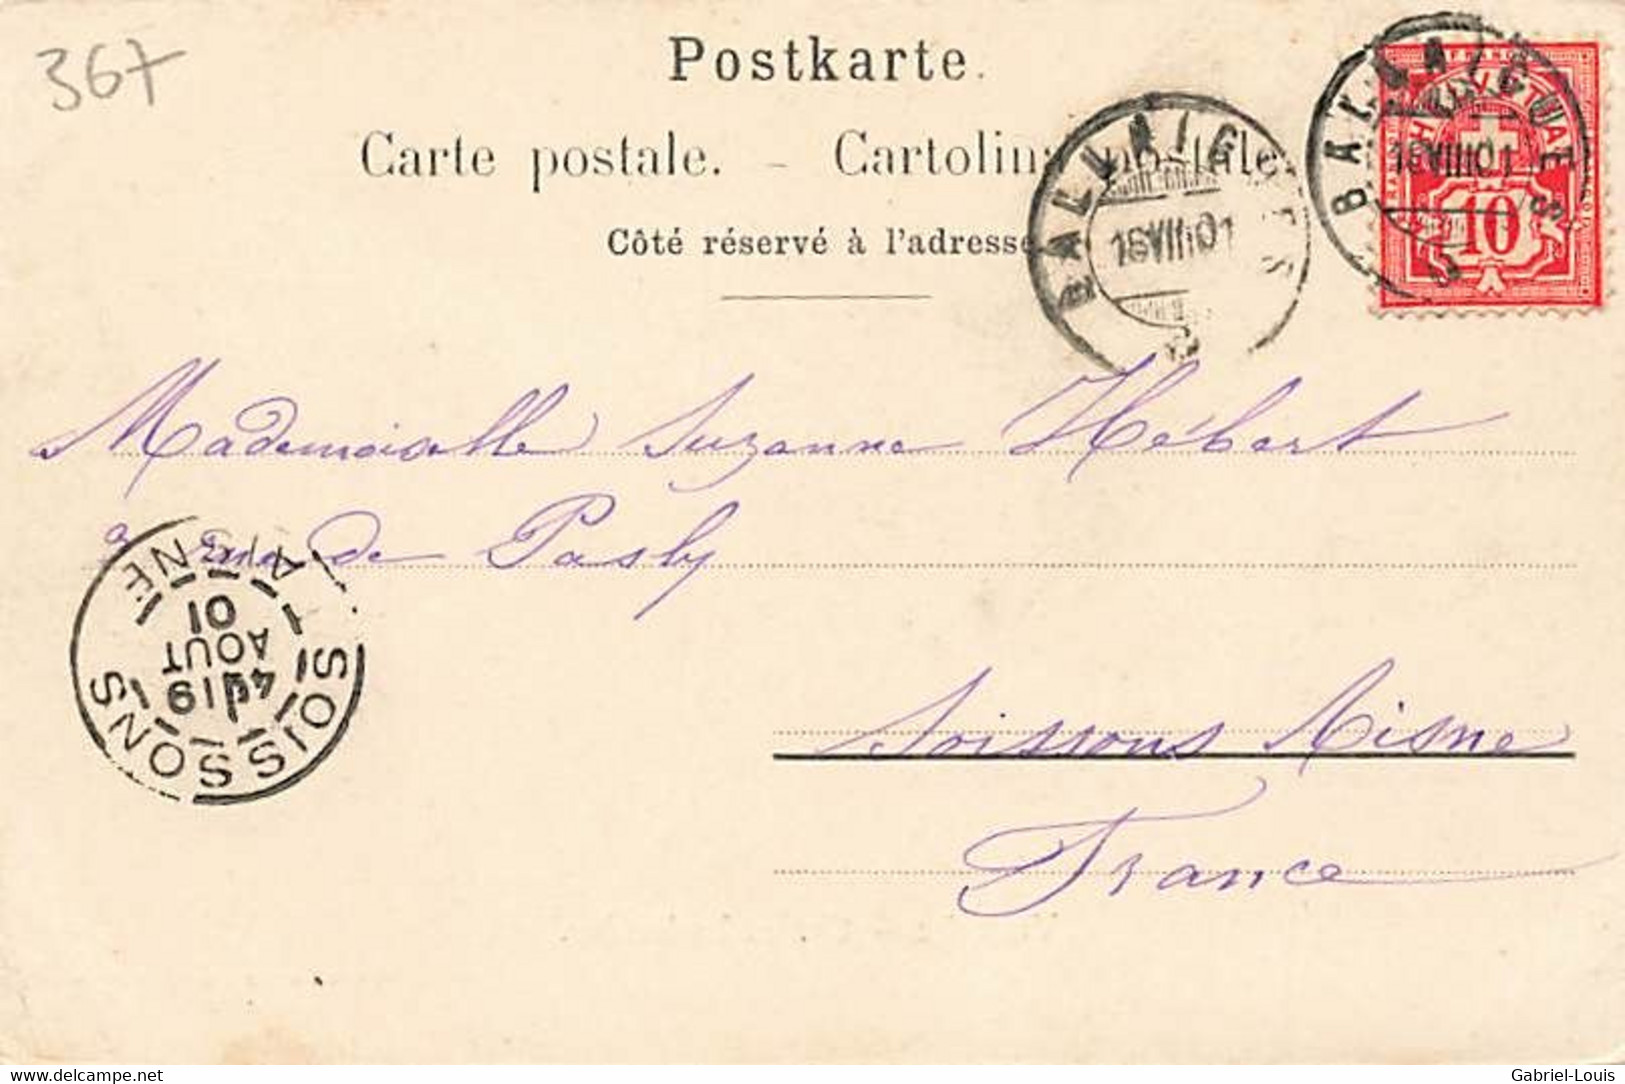 367
Postkarte.
Carte postale. – Cartolina postale.
Côté réservé à l'adresse
BALLAIGUES
BALLAIGUES
HELVETIA
10
Mademoiselle Suzanne Hébert
rue de Pasly
Soissons Aisne
France
SOISSONS
AISNE
4E 19
AOUT
01
www.delcampe.net
Gabriel-Louis